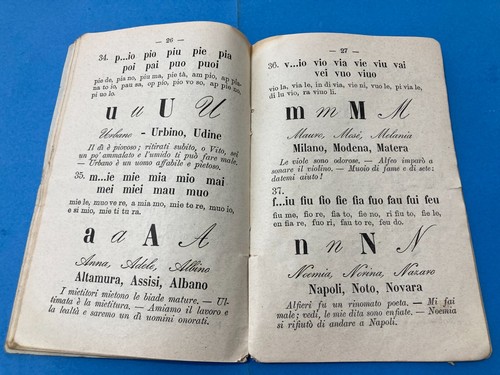 — 26 —
34. p...io pio piu pie pia
poi pai puo puoi
pie de, pia no, piu ma, pie tà, am pio, ap pia-
na to io, pau sa, op pio, pio vo so, ap pio no,
pi uo lo.
u u U U
Urbano - Urbino, Udine
Il dì è piovoso; ritirati subito, o Vito, sei
un po' ammalato e l'umido ti può fare male.
— Urbano è un uomo affabile e pietoso.
35. m...ie mie mia mio mai
mei miei mau muo
mie le, muo ve re, a mia mo, mie to re, muo io,
e si mio, mie ti tu ra.
a a A A
Anna, Adele, Albino
Altamura, Assisi, Albano
I mietitori mietono le biade mature. — Ul-
timata è la mietitura. — Amiamo il lavoro e
la lealtà e saremo un dì uomini onorati.
— 27 —
36. v...io vio via vie viu vai
vei vuo viuo
vio la, via le, in di via, vie ni, vuo le, pi via le,
di lu vio, ra viuo li.
m m M M
Mauro, Mosè, Melania
Milano, Modena, Matera
Le viole sono odorose. — Alfeo imparò a
sonare il violino. — Muoio di fame e di sete;
datemi aiuto!
37.
f...iu fiu fio fie fia fuo fau fui feu
fiu me, fio re, fia to, fie no, ri fiu to, fie le,
en fia re, fuo ri, fau no, feu do.
n n N N
Noemia, Norina, Nazaro
Napoli, Noto, Novara
Alfieri fu un rinomato poeta. — Mi fai
male; vedi, le mie dita sono enfiate. — Noemia
si rifiutò di andare a Napoli.